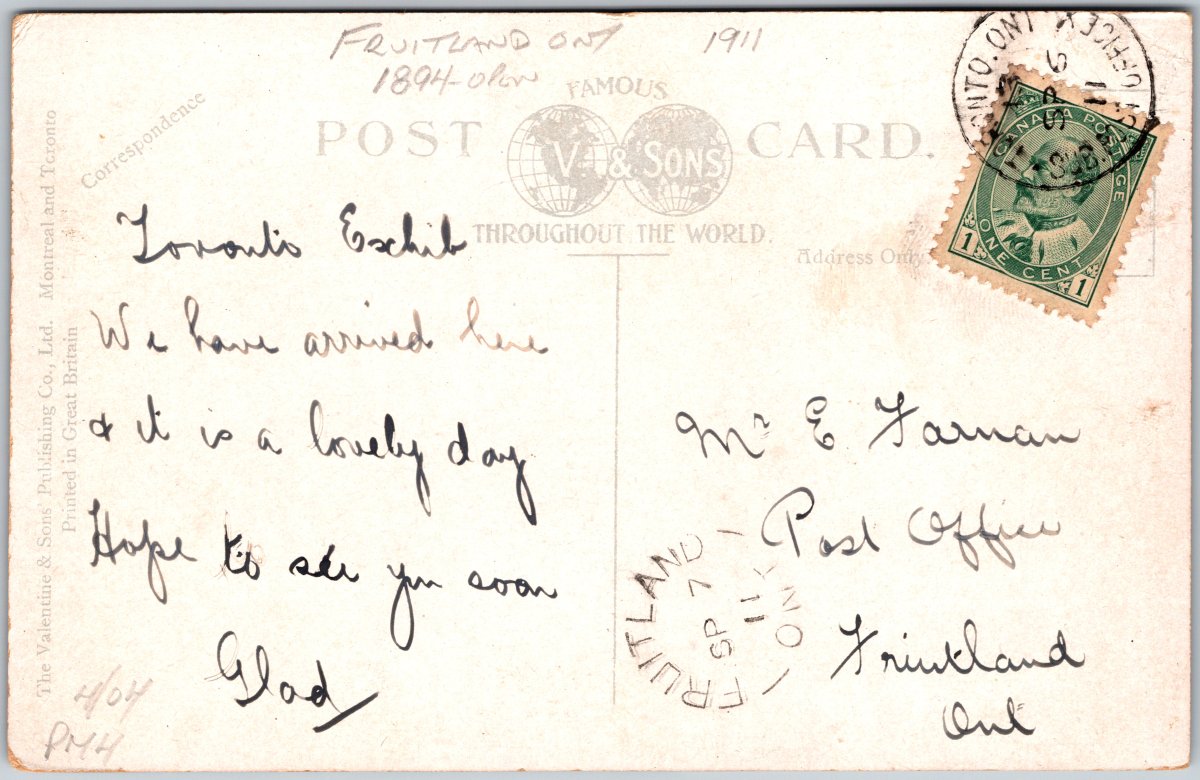 FRUITLAND ONT 1911
1894-open
FAMOUS
POST CARD.
V. & SONS
THROUGHOUT THE WORLD.
Correspondence
Address Only
The Valentine & Sons' Publishing Co., Ltd. Montreal and Toronto
Printed in Great Britain
CANADA POSTAGE
1 ONE CENT 1
Toronto Exhib
We have arrived here
& it is a lovely day
Hope to see you soon
Glad
Mr E Farnan
Post Office
Fruitland
Ont
FRUITLAND
SP 7
11
ONT
4/04
PMH